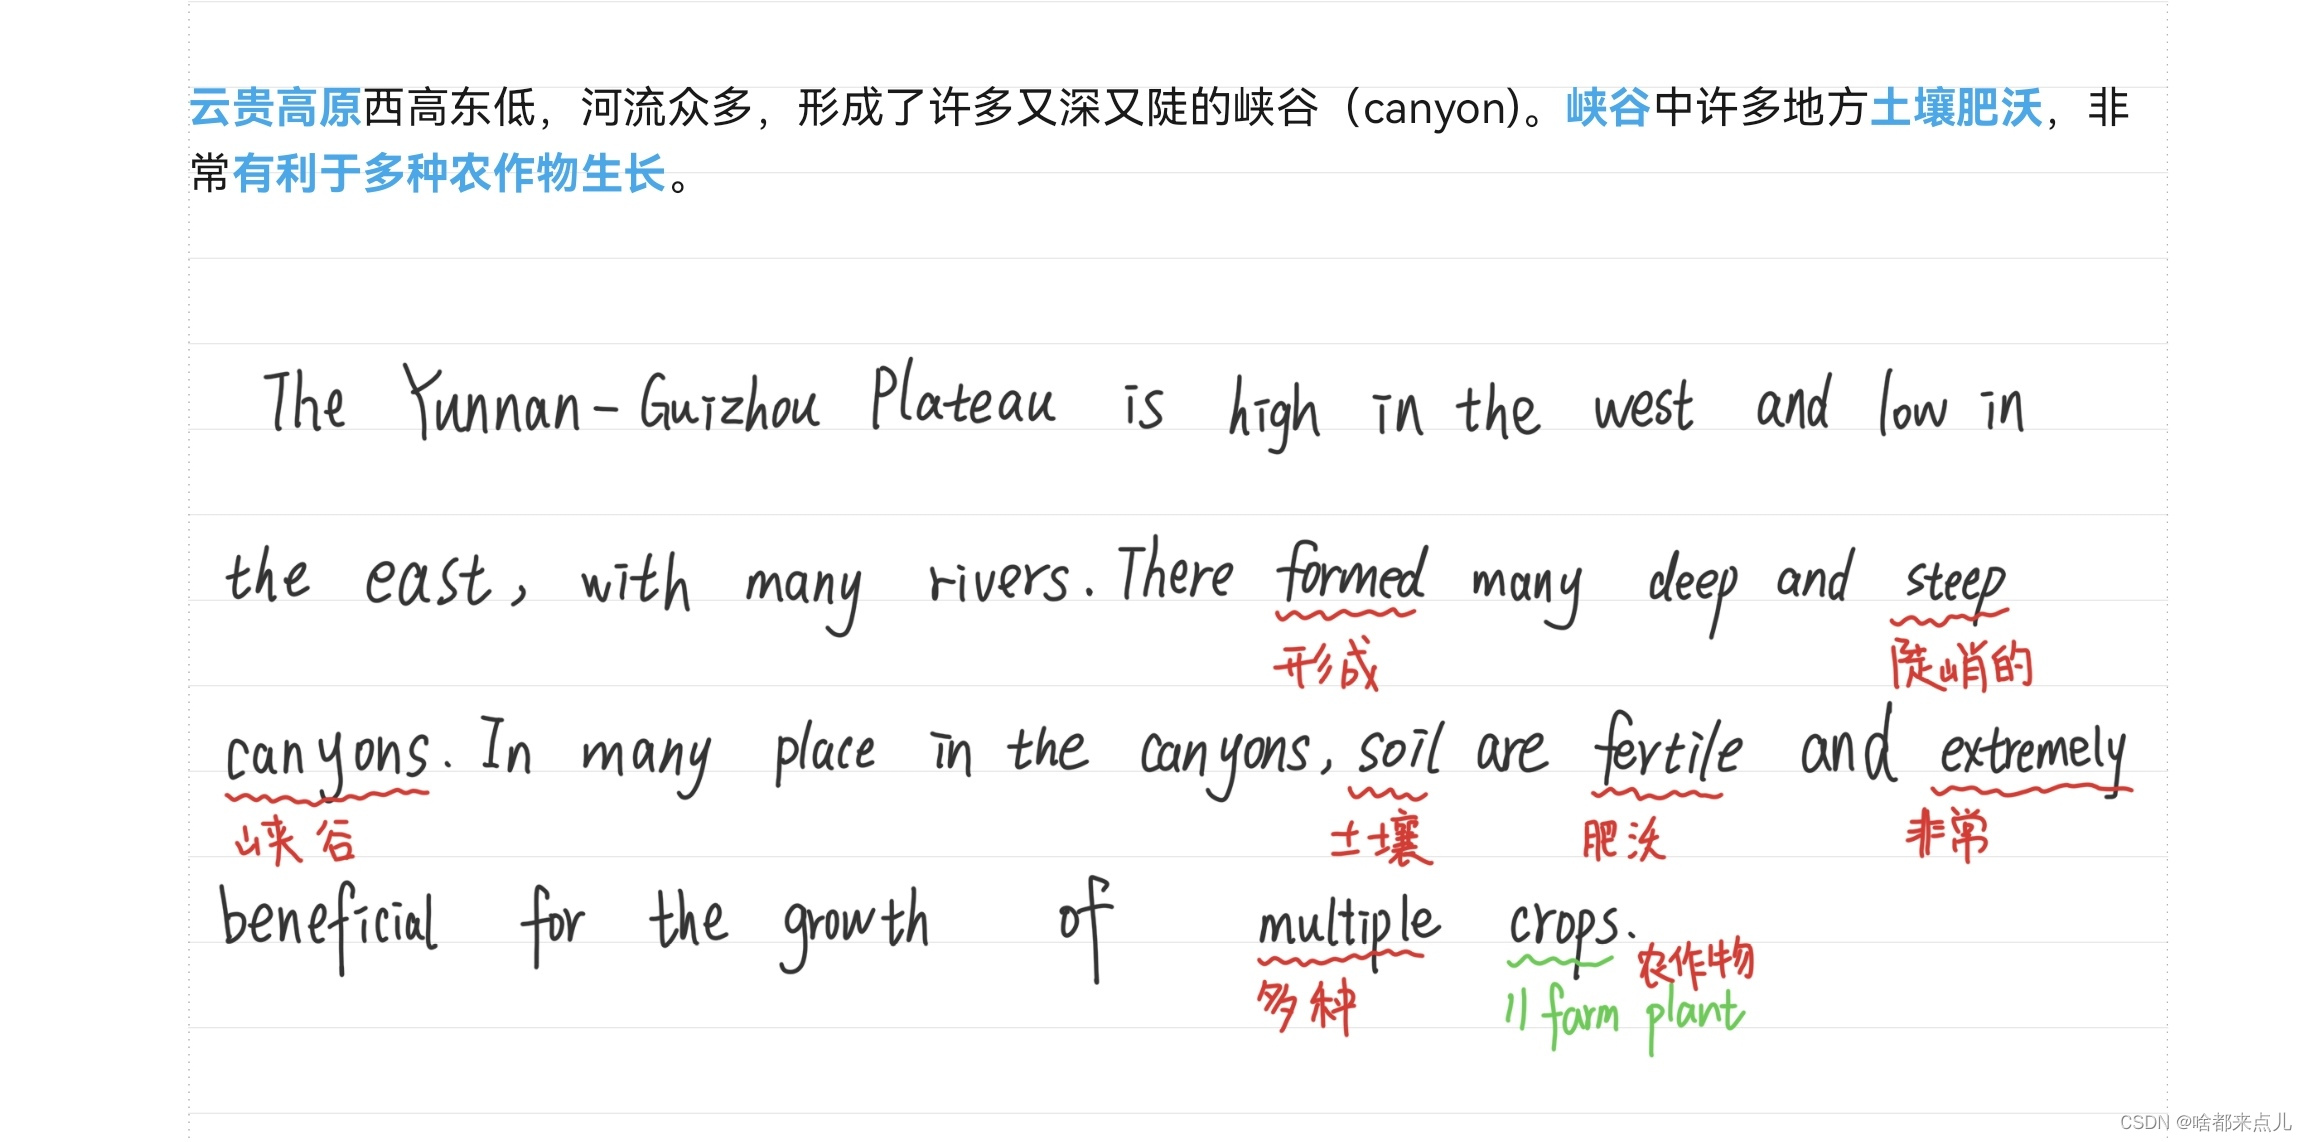 云贵高原西高东低，河流众多，形成了许多又深又陡的峡谷（canyon)。峡谷中许多地方土壤肥沃，非
常有利于多种农作物生长。
The Yunnan-Guizhou Plateau is high in the west and low in
the east, with many rivers. There formed many deep and steep
形成 陡峭的
canyons. In many place in the canyons, soil are fertile and extremely
峡谷 土壤 肥沃 非常
beneficial for the growth of multiple crops.
农作物
多种 || farm plant
CSDN @啥都来点儿